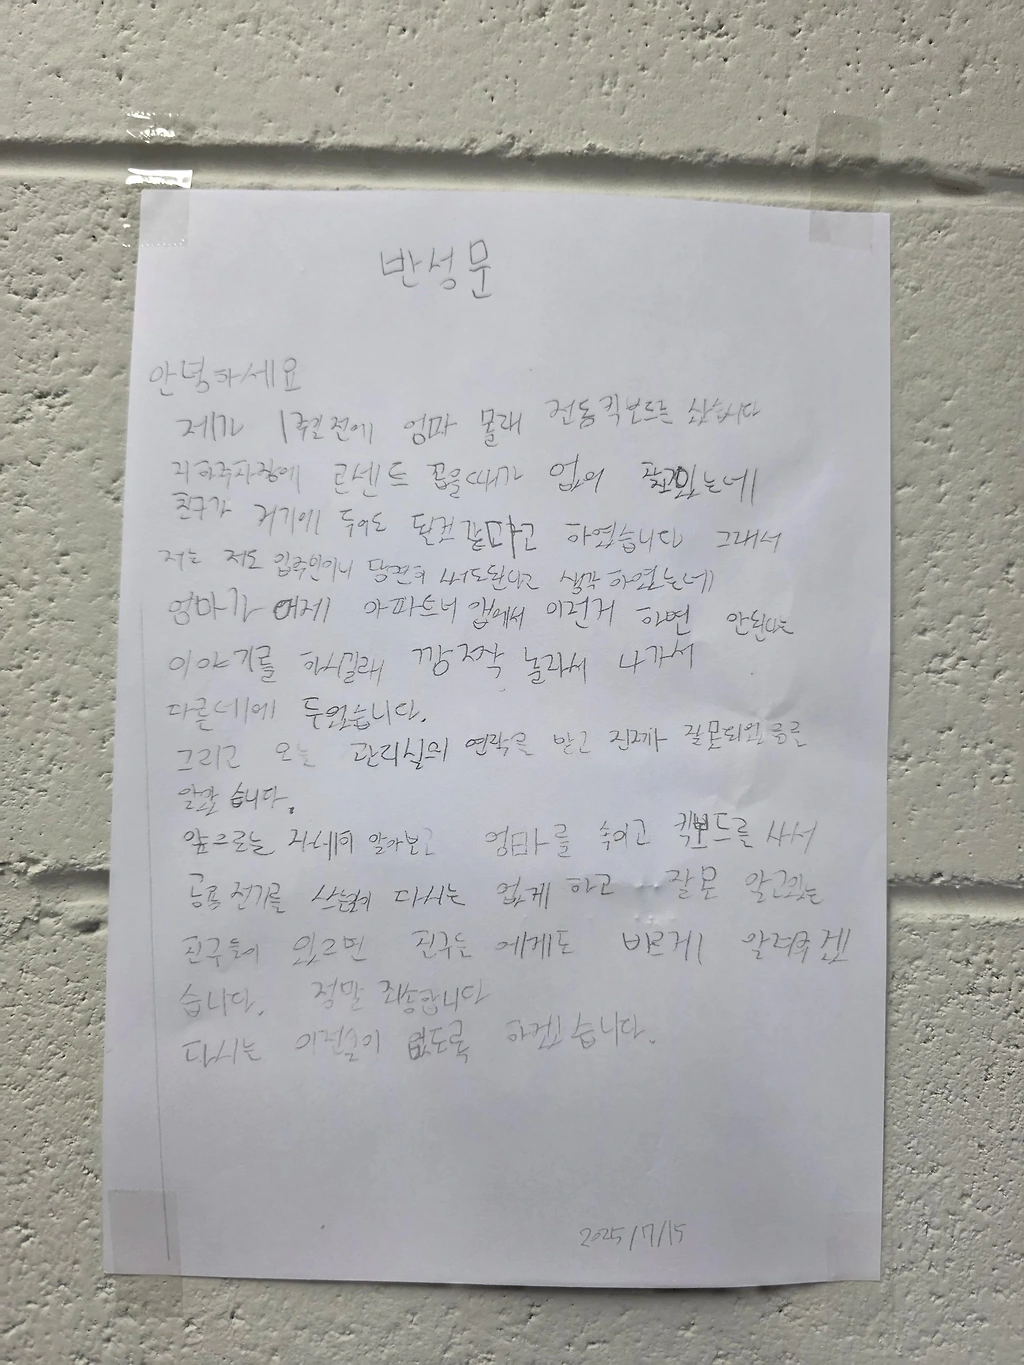 반성문
안녕하세요
제가 1주일전에 엄마 몰래 전동킥보드를 샀습니다
지하주차장에 콘센트 꼽을때가 없어 찾고있는데
친구가 거기에 두어도 된것같다고 하였습니다 그래서
저는 저도 입주민이니 당연히 써도된다고 생각 하였는데
엄마가 어제 아파트너 앱에서 이런거 하면 안된다는
이야기를 하시길래 깜짝 놀라서 나가서
다른데에 두었습니다.
그리고 오늘 관리실의 연락을 받고 진짜 잘못되었음을
알았 습니다.
앞으로는 자세히 알아보고 엄마를 속이고 킥보드를 사서
공용 전기를 쓰는일이 다시는 없게 하고 잘못 알고있는
친구들이 있으면 친구들 에게도 바르게 알려주겠
습니다. 정말 죄송합니다
다시는 이런일이 없도록 하겠습니다.
2025/7/15